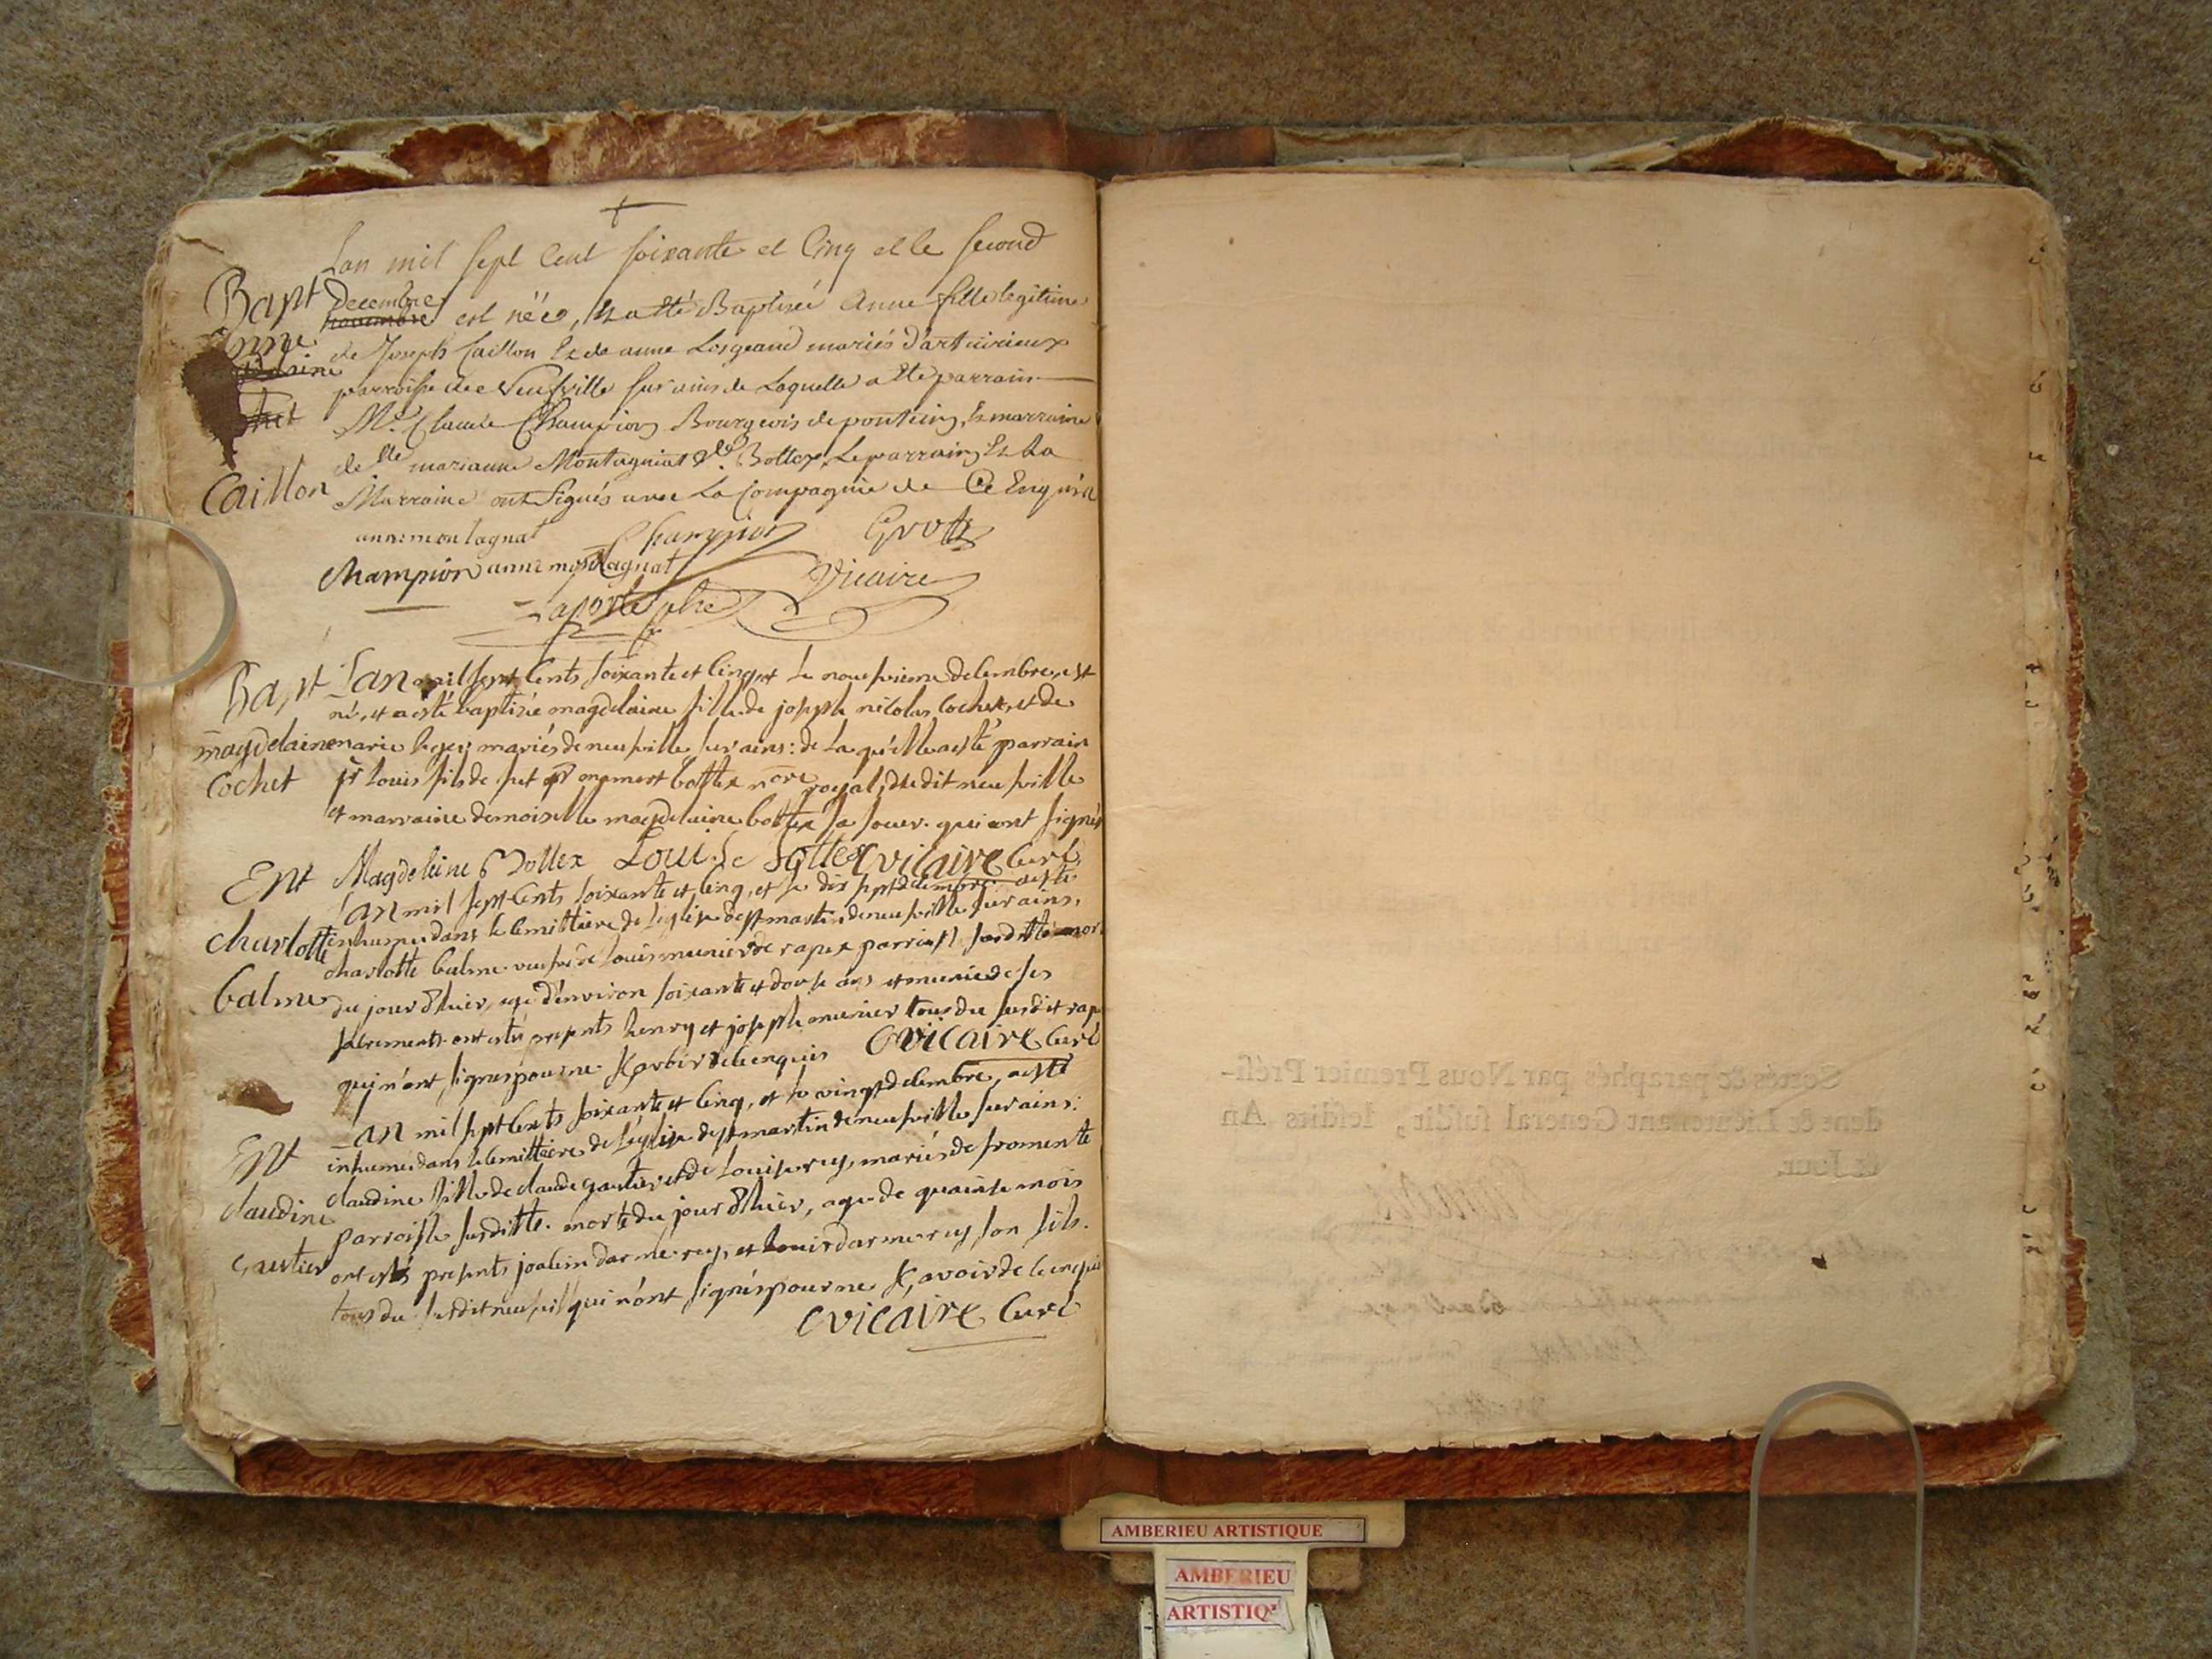 Lan mil sept Cent soixante et Cinq et le second
Bapt Decembre est née, Et a Eté Baptisée Anne fille legitime
Anne de Joseph Caillon Et de anne mariés d'articirieux
parroisse de Neufville sur ains de Laquelle a Eté parrain
Mr. Claude Champion Bourgeois de pontein, Et marraine
delle marianne Montagniat Bottex, Le parrain, Et La
Caillon Marraine ont Signés avec La Compagnie de Ce Enquis
anne montagnat Champion
Champion anne montagnat Vicaire
Laporte
Bapt Lan mil sept Cents soixante et Cinq, et le neufvieme decembre, est
né, et a esté baptizée magdelaine fille de joseph nicolas Cochet, et de
magdelaine marie leger mariés de neufville sur ains: de La qu'elle a esté parrain
Cochet Sr Louis fils de fut Sr bottex nore royal dudit neufville
et marraine demoiselle magdelaine bottex sa soeur. qui ont signés
Magdeleine Bottex Loui Bottex Vicaire Curé
Ent Lan mil sept Cents soixante et Cinq, et le dix sept decembre a esté
charlotte inhumée dans le Cemittiere de l'eglise de st martin de neufville sur ains,
charlotte balme veufve de Louis munier de rapex parroisse susditte mor
balme du jour d'hier, age d'environ soixante et douse ans et munie de ses
sacrements. ont estés presents henry et joseph munier tous du susdit rap
qui n'ont signes pour ne sçavoir de ce enquis Vicaire Curé
Lan mil sept Cents soixante et Cinq, et le vingt decembre, a esté
Ent inhumée dans le Cemittiere de l'eglise de st martin de neufville sur ains:
claudine claudine fille de claude gautier et de Louise rey, mariés de fromente
parroisse susditte. morte du jour d'hier, age de quainse mois
gautier ont estés presents joachim darmerey, et Louis darmerey son fils.
tous du susdit neufvil qui n'ont signés pour ne sçavoir de ce enquis
Vicaire Curé
Cottés & paraphés par Nous Premier Prési-
dent & Lieutenant General susdit, lesdits An
& Jour.
AMBERIEU ARTISTIQUE
AMBERIEU
ARTISTIQ